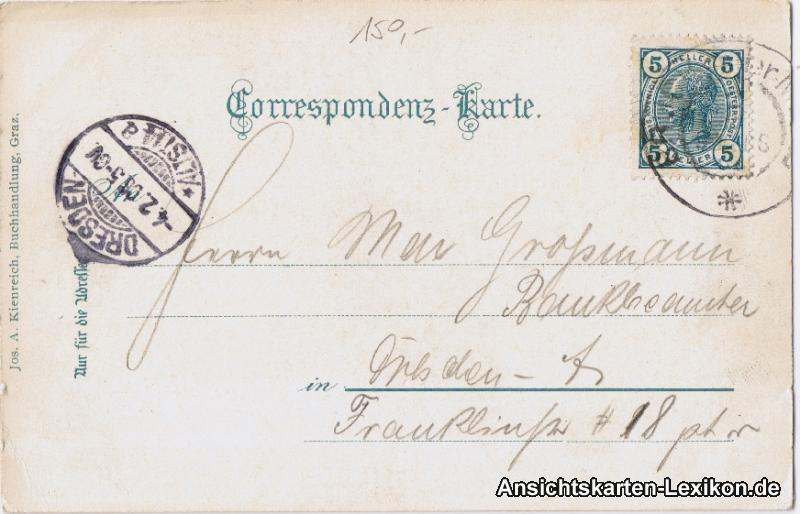 150,-
Correspondenz-Karte.
5 HELLER 5
5 HELLER 5
DRESDEN-ALTST. 1 a
-4.2.05.
Jos. A. Kienreich, Buchhandlung, Graz.
Nur für die Adresse
Herrn Max Großmann
Bankbeamter
in Dresden - A
Franklinstr # 18 ptr
Ansichtskarten-Lexikon.de